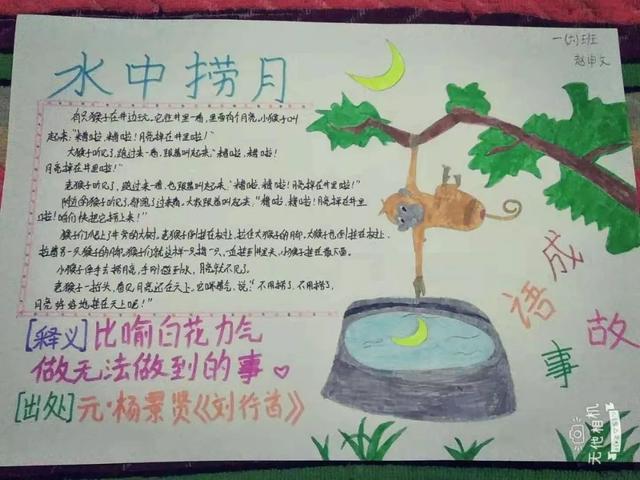 水中捞月
一(六)班
赵申文
有只猴子在井边玩。它往井里一看，里面有个月亮。小猴子叫
起来："糟啦，糟啦！月亮掉在井里啦！"
大猴子听见了，跑过来一看，跟着叫起来："糟啦，糟啦！
月亮掉在井里啦！"
老猴子听见了，跑过来一看，也跟着叫起来："糟啦，糟啦！月亮掉在井里啦！"
附近的猴子听见了，都跑了过来看。大家跟着叫起来："糟啦，糟啦！月亮掉在井里
啦！咱们快把它捞上来！"
猴子们爬上了井旁的大树。老猴子倒挂在树上，拉住大猴子的脚。大猴子也倒挂在树上，
拉着另一只猴子的脚。猴子们就这样一只接一只，一直挂到井里头，小猴子挂在最下面。
小猴子伸手去捞月亮，手刚碰到水，月亮就不见了。
老猴子一抬头，看见月亮还在天上。它喘着气，说："不用捞了，不用捞了，
月亮好好地挂在天上呢！"
[释义]比喻白花力气
做无法做到的事
[出处]元·杨景贤《刘行首》
成
语
故
事
无他相机